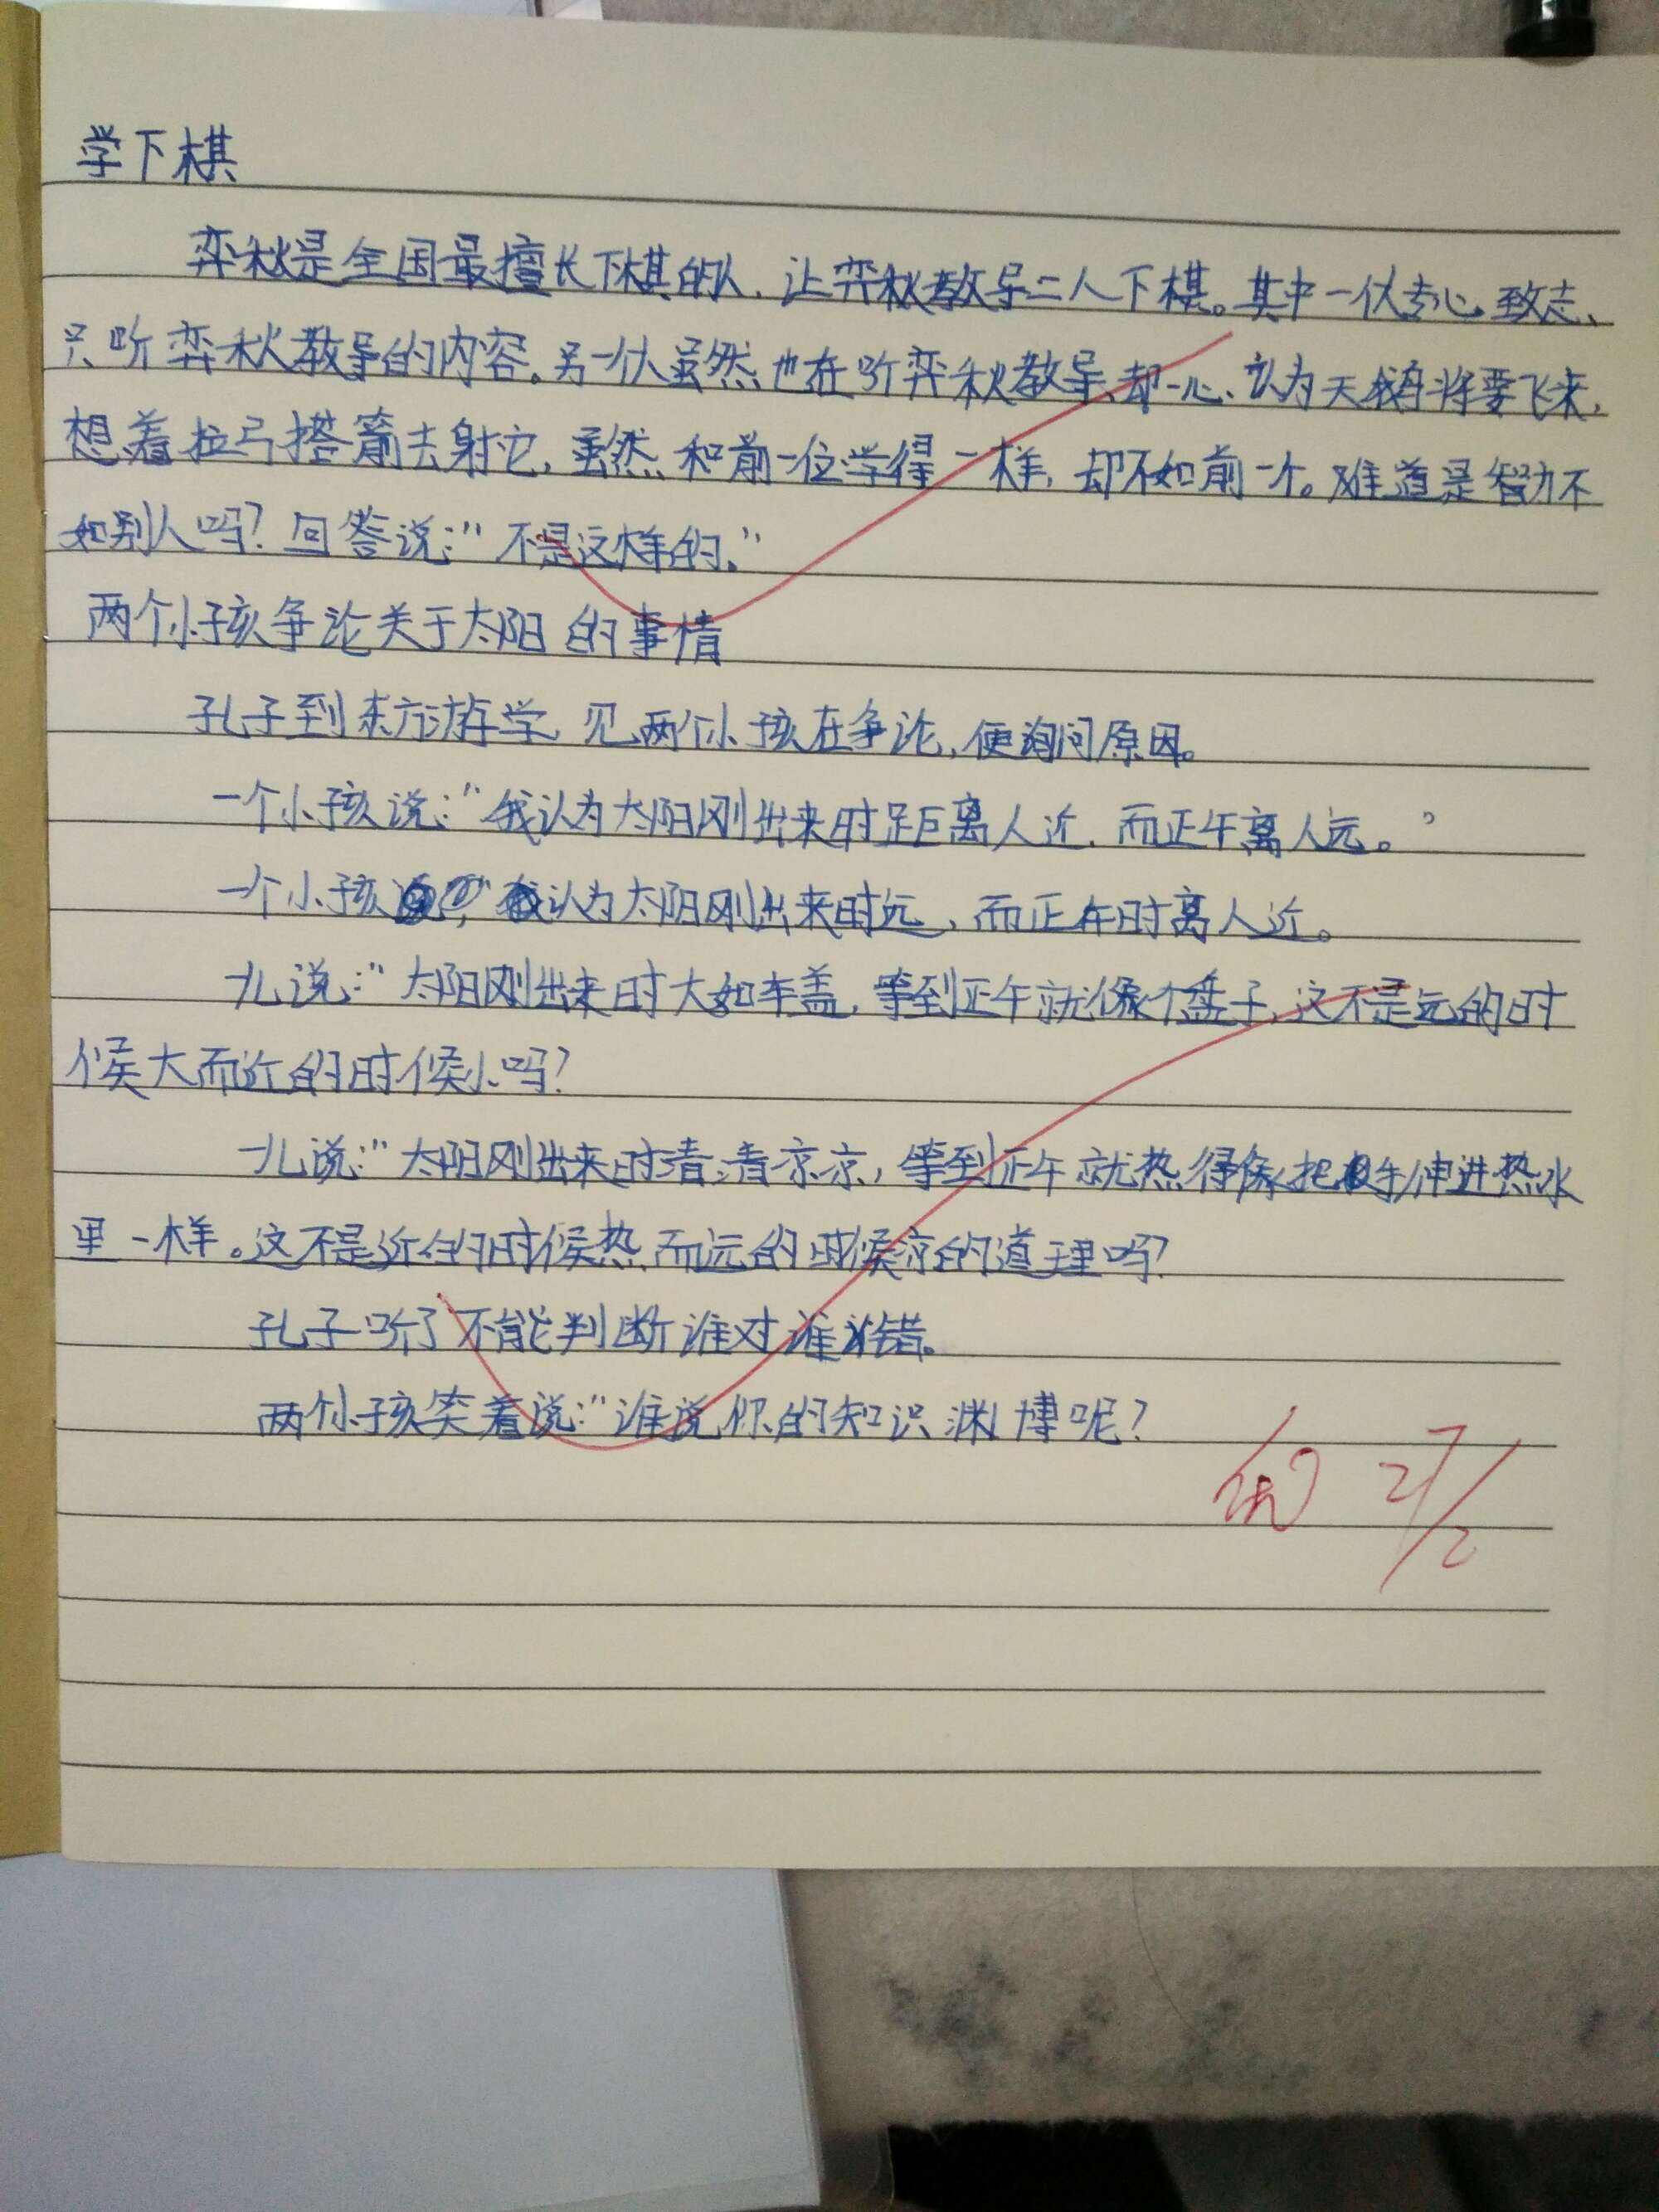 学下棋
弈秋是全国最擅长下棋的人，让弈秋教导二人下棋。其中一人专心致志、
只听弈秋教导的内容。另一人虽然也在听弈秋教导、却一心、认为天鹅将要飞来，
想着拉弓搭箭去射它，虽然和前一位学得一样，却不如前一个。难道是智力不
如别人吗？回答说：“不是这样的。”
两个小孩争论关于太阳的事情
孔子到东方游学，见两个小孩在争论，便询问原因。
一个小孩说：“我认为太阳刚出来时距离人近，而正午离人远。”
一个小孩说：“我认为太阳刚出来时远，而正午时离人近。
一儿说：“太阳刚出来时大如车盖，等到正午就像个盘子，这不是远的时
候大而近的时候小吗？
一儿说：“太阳刚出来时清清凉凉，等到正午就热得像把手伸进热水
里一样。这不是近的时候热而远的时候凉的道理吗？
孔子听了不能判断谁对谁错。
两个小孩笑着说：“谁说你的知识渊博呢？